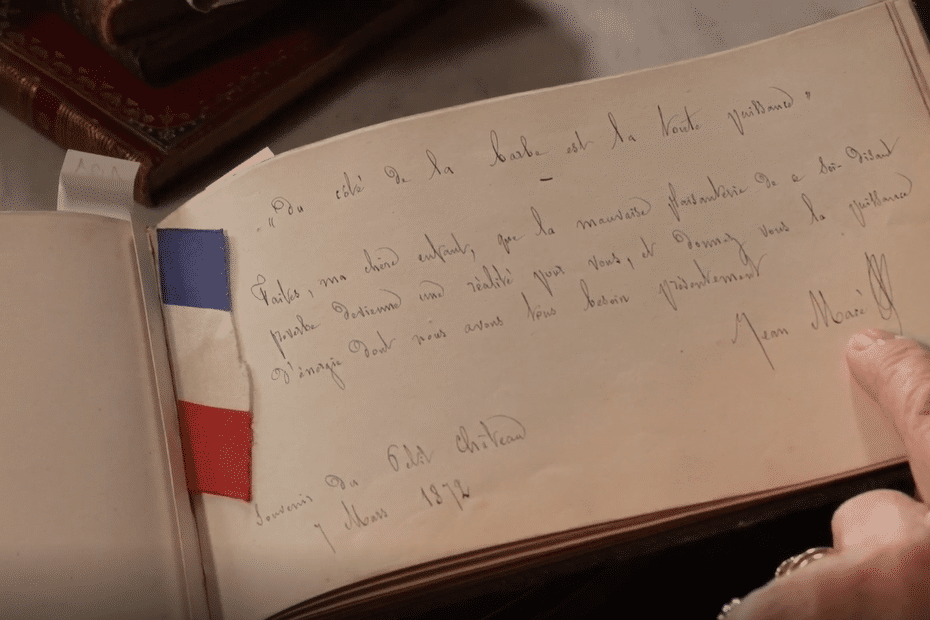 "Du côté de la barbe est la toute puissance"
Faites, ma chère enfant, que la mauvaise plaisanterie de ce soi-disant
proverbe devienne une réalité pour vous, et donnez vous la puissance
d'énergie dont nous avons tous besoin présentement
Jean Macé
Souvenir du Petit Château
7 Mars 1872